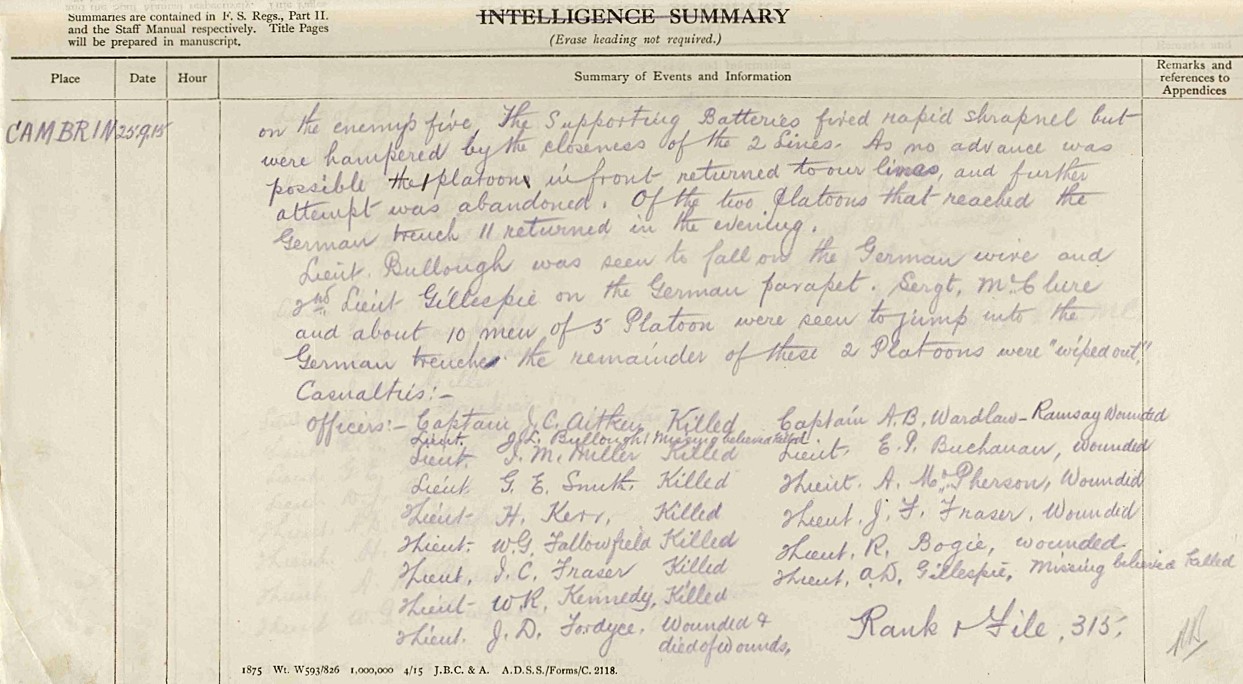 Summaries are contained in F. S. Regs., Part II.
and the Staff Manual respectively. Title Pages
will be prepared in manuscript.
INTELLIGENCE SUMMARY
(Erase heading not required.)
Place
Date
Hour
Summary of Events and Information
Remarks and
references to
Appendices
CAMBRIN 25.9.15
on the enemy's five. The Supporting Batteries fired rapid shrapnel but
were hampered by the closeness of the 2 Lines. As no advance was
possible the platoon in front returned to our lines, and further
attempt was abandoned. Of the two Platoons that reached the
German trench 11 returned in the evening.
Lieut. Bullough was seen to fall on the German wire and
2nd Lieut Gillespie on the German parapet. Sergt, McClure
and about 10 men of 5 Platoon were seen to jump into the
German trenches the remainder of these 2 Platoons were "wiped out".
Casualtris:-
Officers:- Captain J.C. Aitken Killed
Lieut. J.L. Bullough Missing believed killed
Lieut. J. M. Killed
Lieut. G. E. Smith. Killed
2Lieut. H. Kerr, Killed
2Lieut. W.G. Fallowfield Killed
2Lieut. J. C. Fraser Killed
2Lieut- W.R. Kennedy, Killed
2Lieut. J. D. Fordyce. Wounded &
died of wounds,
Captain A.B. Wardlaw-Ramsay Wounded
Lieut. E. P. Buchanan, wounded
2Lieut. A. McPherson, Wounded
2Lieut. J. F. Fraser, Wounded
2Lieut. R. Bogie, wounded
2Lieut. A.D. Gillespie, Missing believed Killed
Rank & File, 315.
1875 Wt. W593/826 1,000,000 4/15 J.B.C. & A. A.D.S.S./Forms/C. 2118.